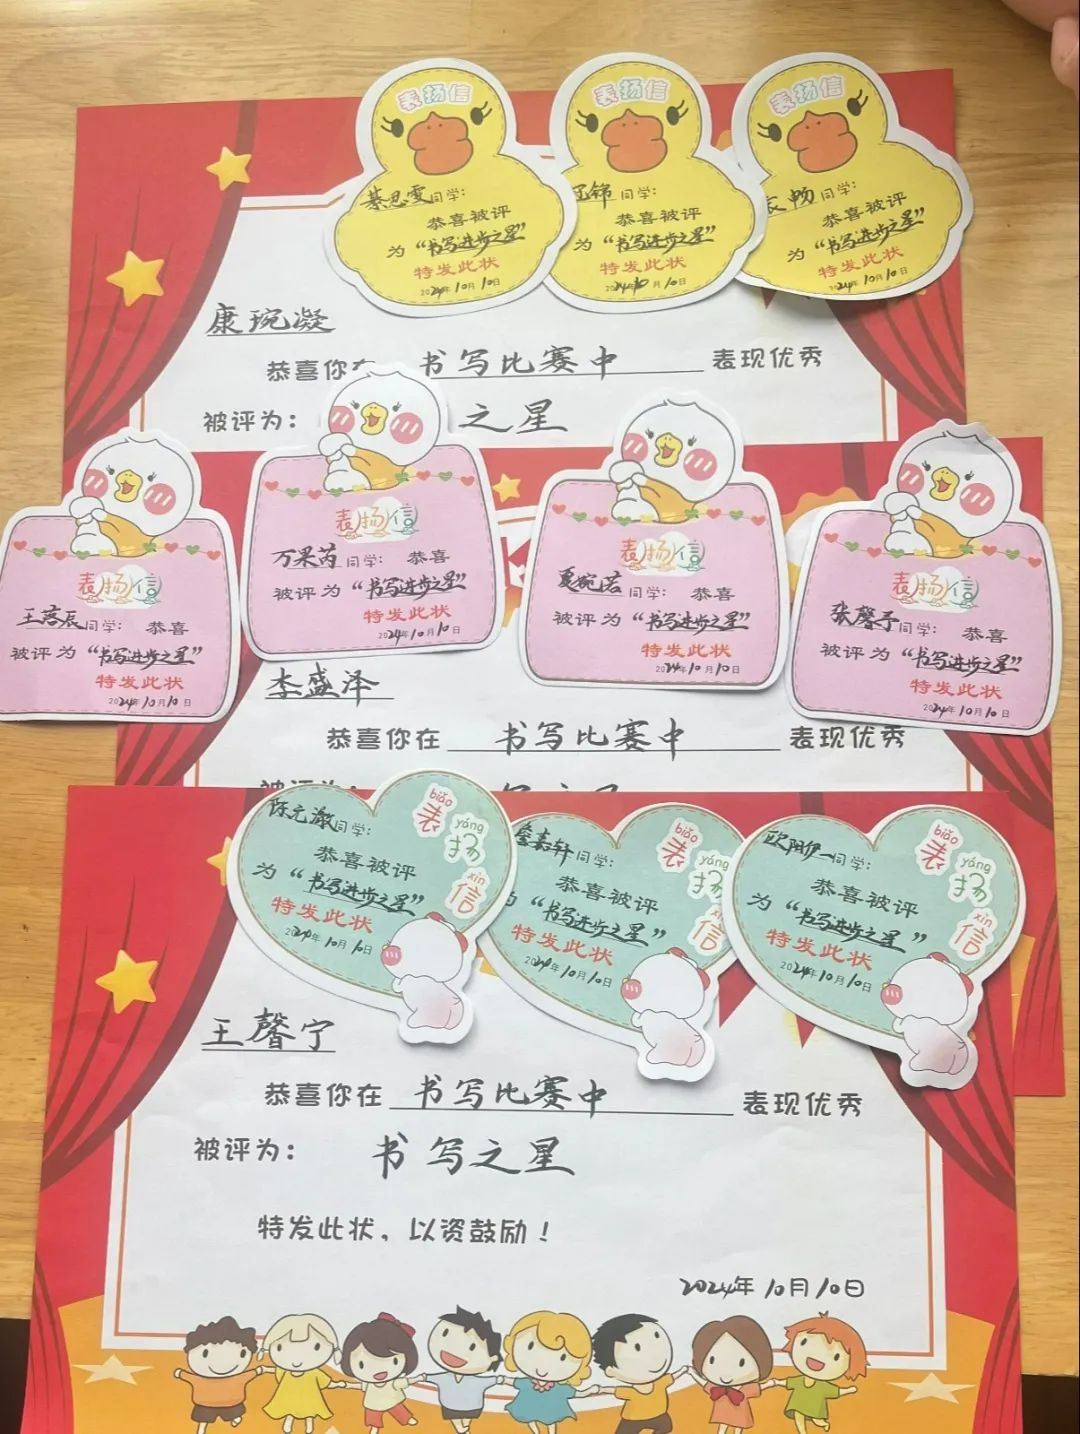 表扬信
綦思雯同学:
恭喜被评
为“书写进步之星”
特发此状
2024年10月10日
表扬信
冠锦同学:
恭喜被评
为“书写进步之星”
特发此状
2024年10月10日
表扬信
畅同学:
恭喜被评
为“书写进步之星”
特发此状
2024年10月10日
康琬凝
恭喜你在 书写比赛中 表现优秀
被评为: 之星
表扬信
王燕辰同学: 恭喜
被评为“书写进步之星”
特发此状
2024年10月10日
表扬信
万果芮同学: 恭喜
被评为“书写进步之星”
特发此状
2024年10月10日
表扬信
夏婉诺同学: 恭喜
被评为“书写进步之星”
特发此状
2024年10月10日
表扬信
张馨予同学: 恭喜
被评为“书写进步之星”
特发此状
2024年10月10日
李盛泽
恭喜你在 书写比赛中 表现优秀
biǎo yáng xìn
表扬信
陈元澈同学:
恭喜被评
为“书写进步之星”
特发此状
2024年10月10日
biǎo yáng xìn
表扬信
嘉轩同学:
恭喜被评
为“书写进步之星”
特发此状
2024年10月10日
biǎo yáng xìn
表扬信
欧阳伊一同学:
恭喜被评
为“书写进步之星”
特发此状
2024年10月10日
王馨宁
恭喜你在 书写比赛中 表现优秀
被评为: 书写之星
特发此状，以资鼓励！
2024年10月10日